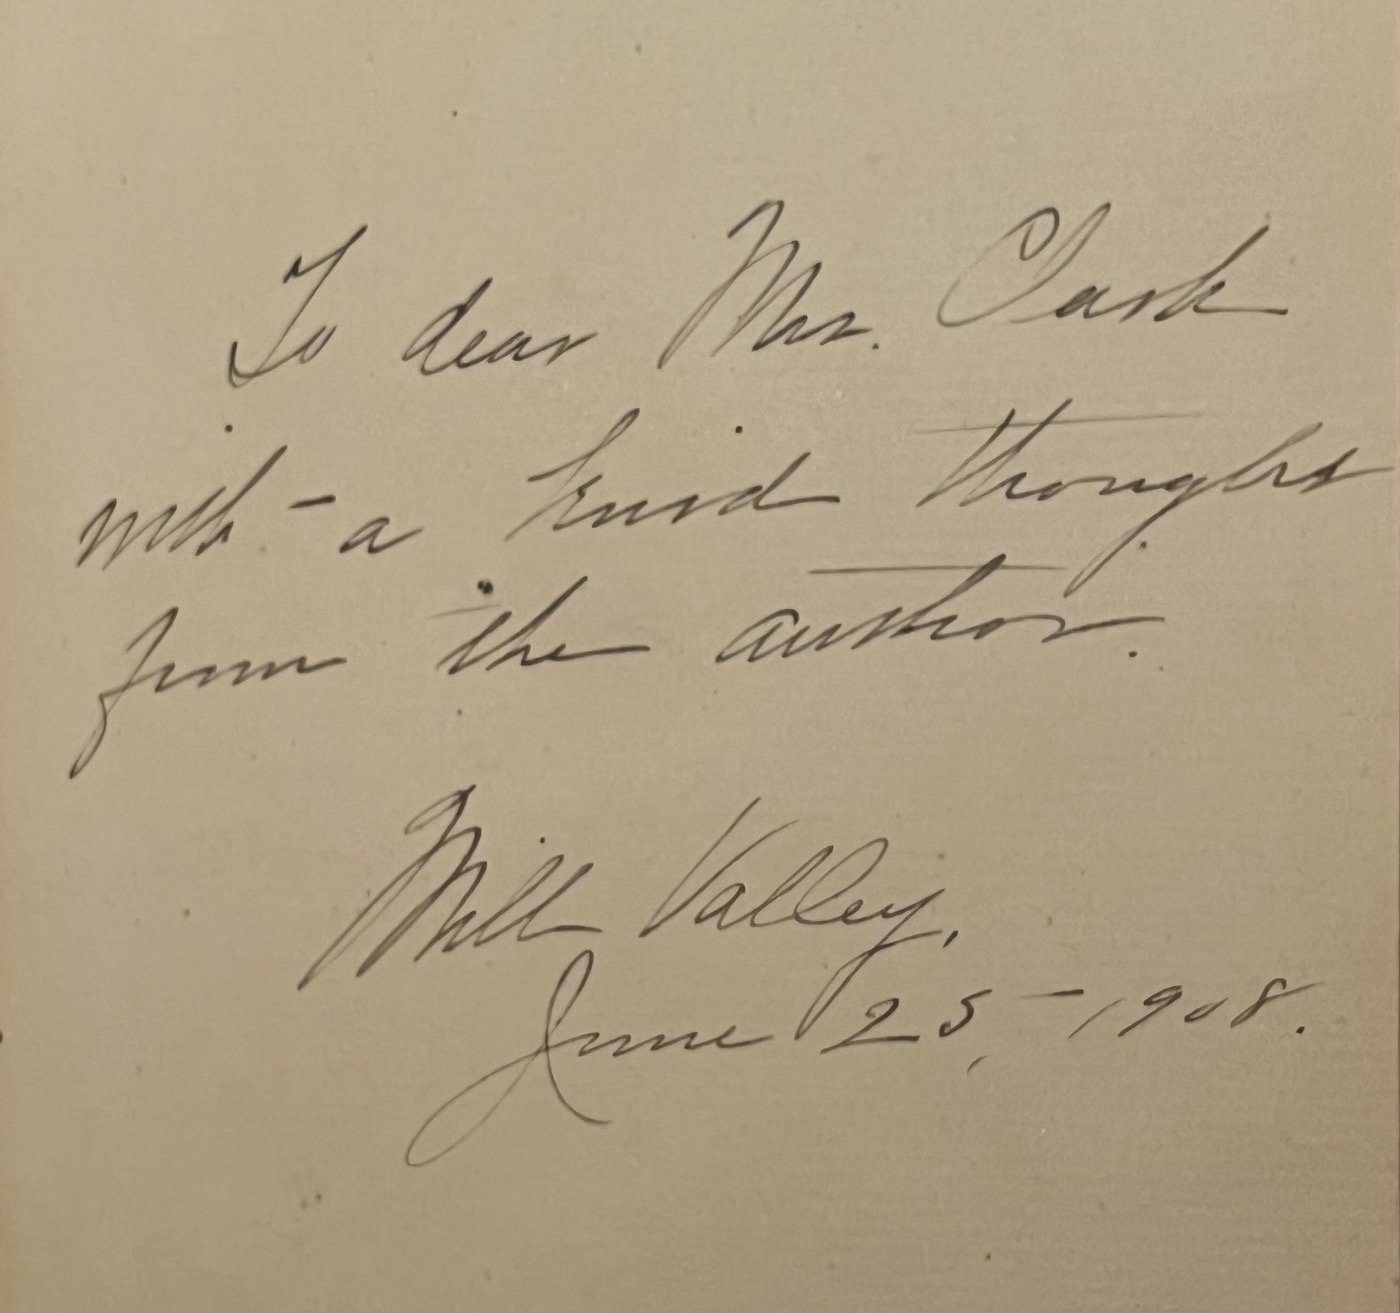 To dear Mrs. Clark
with a kind thought
from the author.
Mill Valley,
June 25, - 1908.